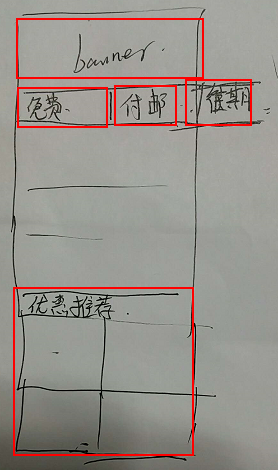 banner.
免费 付邮 值期
优惠推荐.